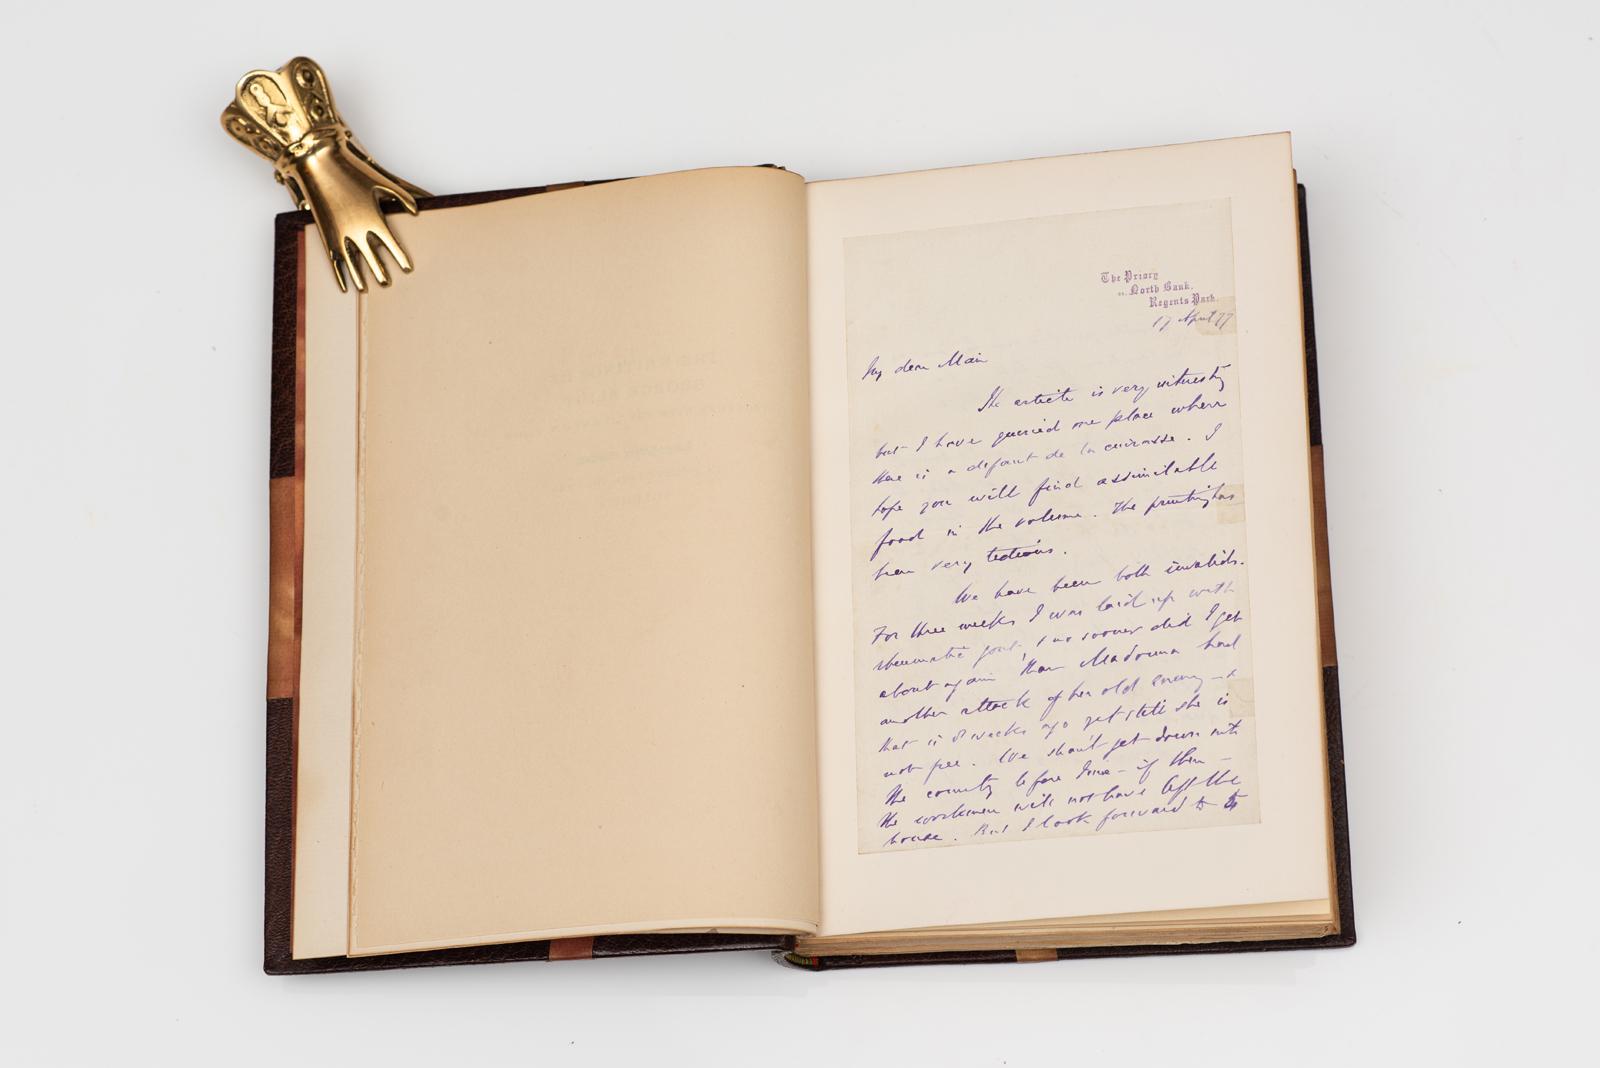 The Priory
21. North Bank.
Regents Park.
17 April 77
My dear Main
The article is very interestg
but I have queried one place where
there is a defaut de la cuirasse. I
hope you will find assimilable
food in the volume. The printing has
been very tedious.
We have been both invalids.
For three weeks I was laid up with
rheumatic gout, & no sooner did I get
about again than Madonna had
another attack of her old enemy – &
that is 8 weeks ago yet still she is
not free. We shan't get down into
the country before June – if then –
the workmen will not have left the
house. But I look forward to